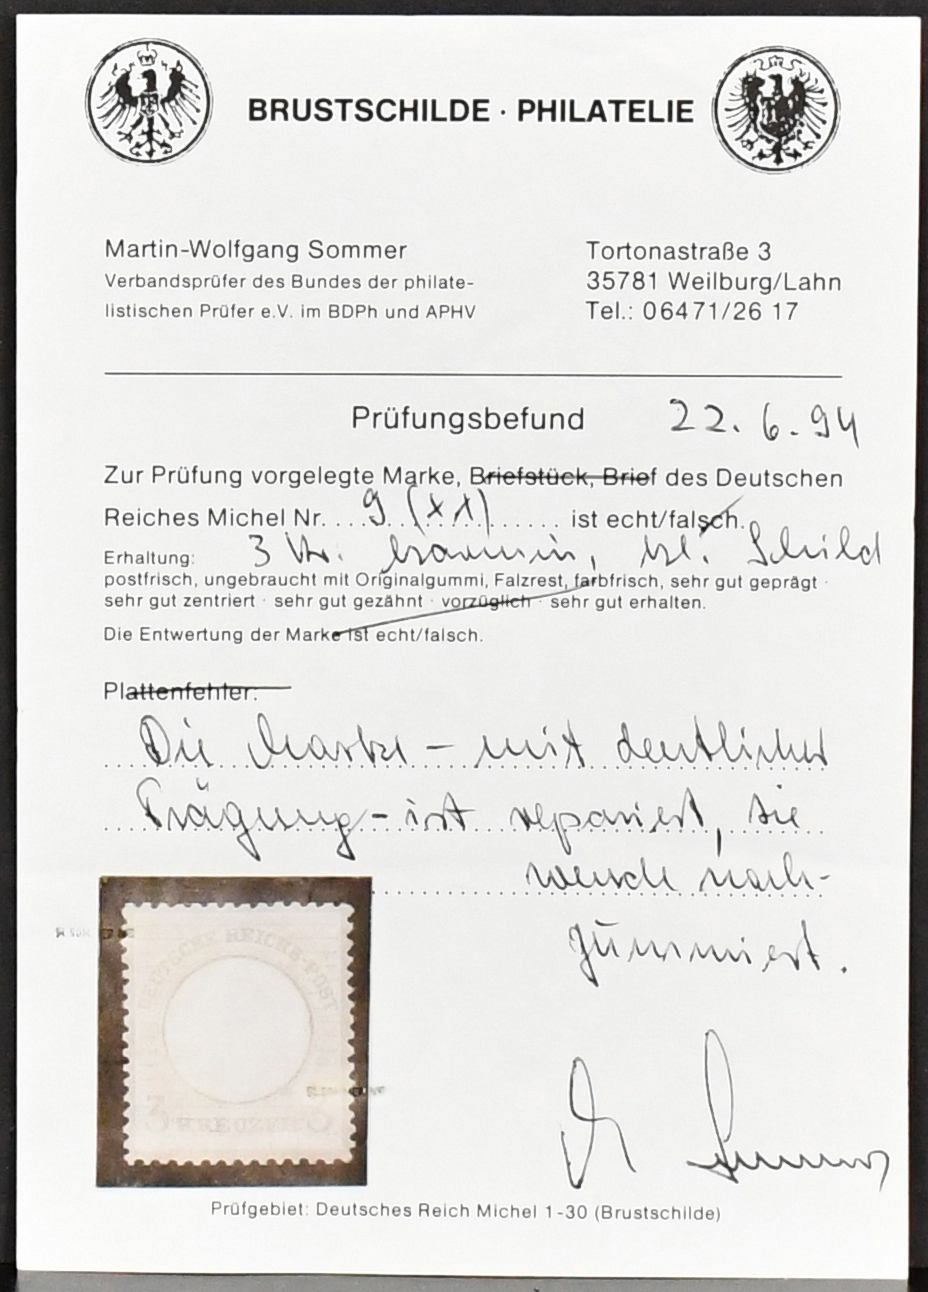 BRUSTSCHILDE · PHILATELIE
Martin-Wolfgang Sommer
Verbandsprüfer des Bundes der philate-
listischen Prüfer e.V. im BDPh und APHV
Tortonastraße 3
35781 Weilburg/Lahn
Tel.: 06471/26 17
Prüfungsbefund 22.6.94
Zur Prüfung vorgelegte Marke, Briefstück, Brief des Deutschen
Reiches Michel Nr. 9 (xx) ist echt/falsch.
Erhaltung: 3 Kr. karmin, kl. Schild
postfrisch, ungebraucht mit Originalgummi, Falzrest, farbfrisch, sehr gut geprägt ·
sehr gut zentriert · sehr gut gezähnt · vorzüglich · sehr gut erhalten.
Die Entwertung der Marke ist echt/falsch.
Plattenfehler:
Die Marke – mit deutlicher
Prägung – ist repariert, sie
wurde nach-
gummiert.
DEUTSCHE REICHS-POST
3 KREUZER 3
Sommer
Prüfgebiet: Deutsches Reich Michel 1-30 (Brustschilde)